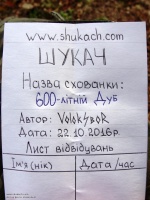 www.shukach.com
ШУКАЧ
Назва схованки:
600-літній Дуб
Автор: VolokhoR
Дата: 22.10.2016р.
Лист відвідувань
Ім'я(нік)
Дата/час